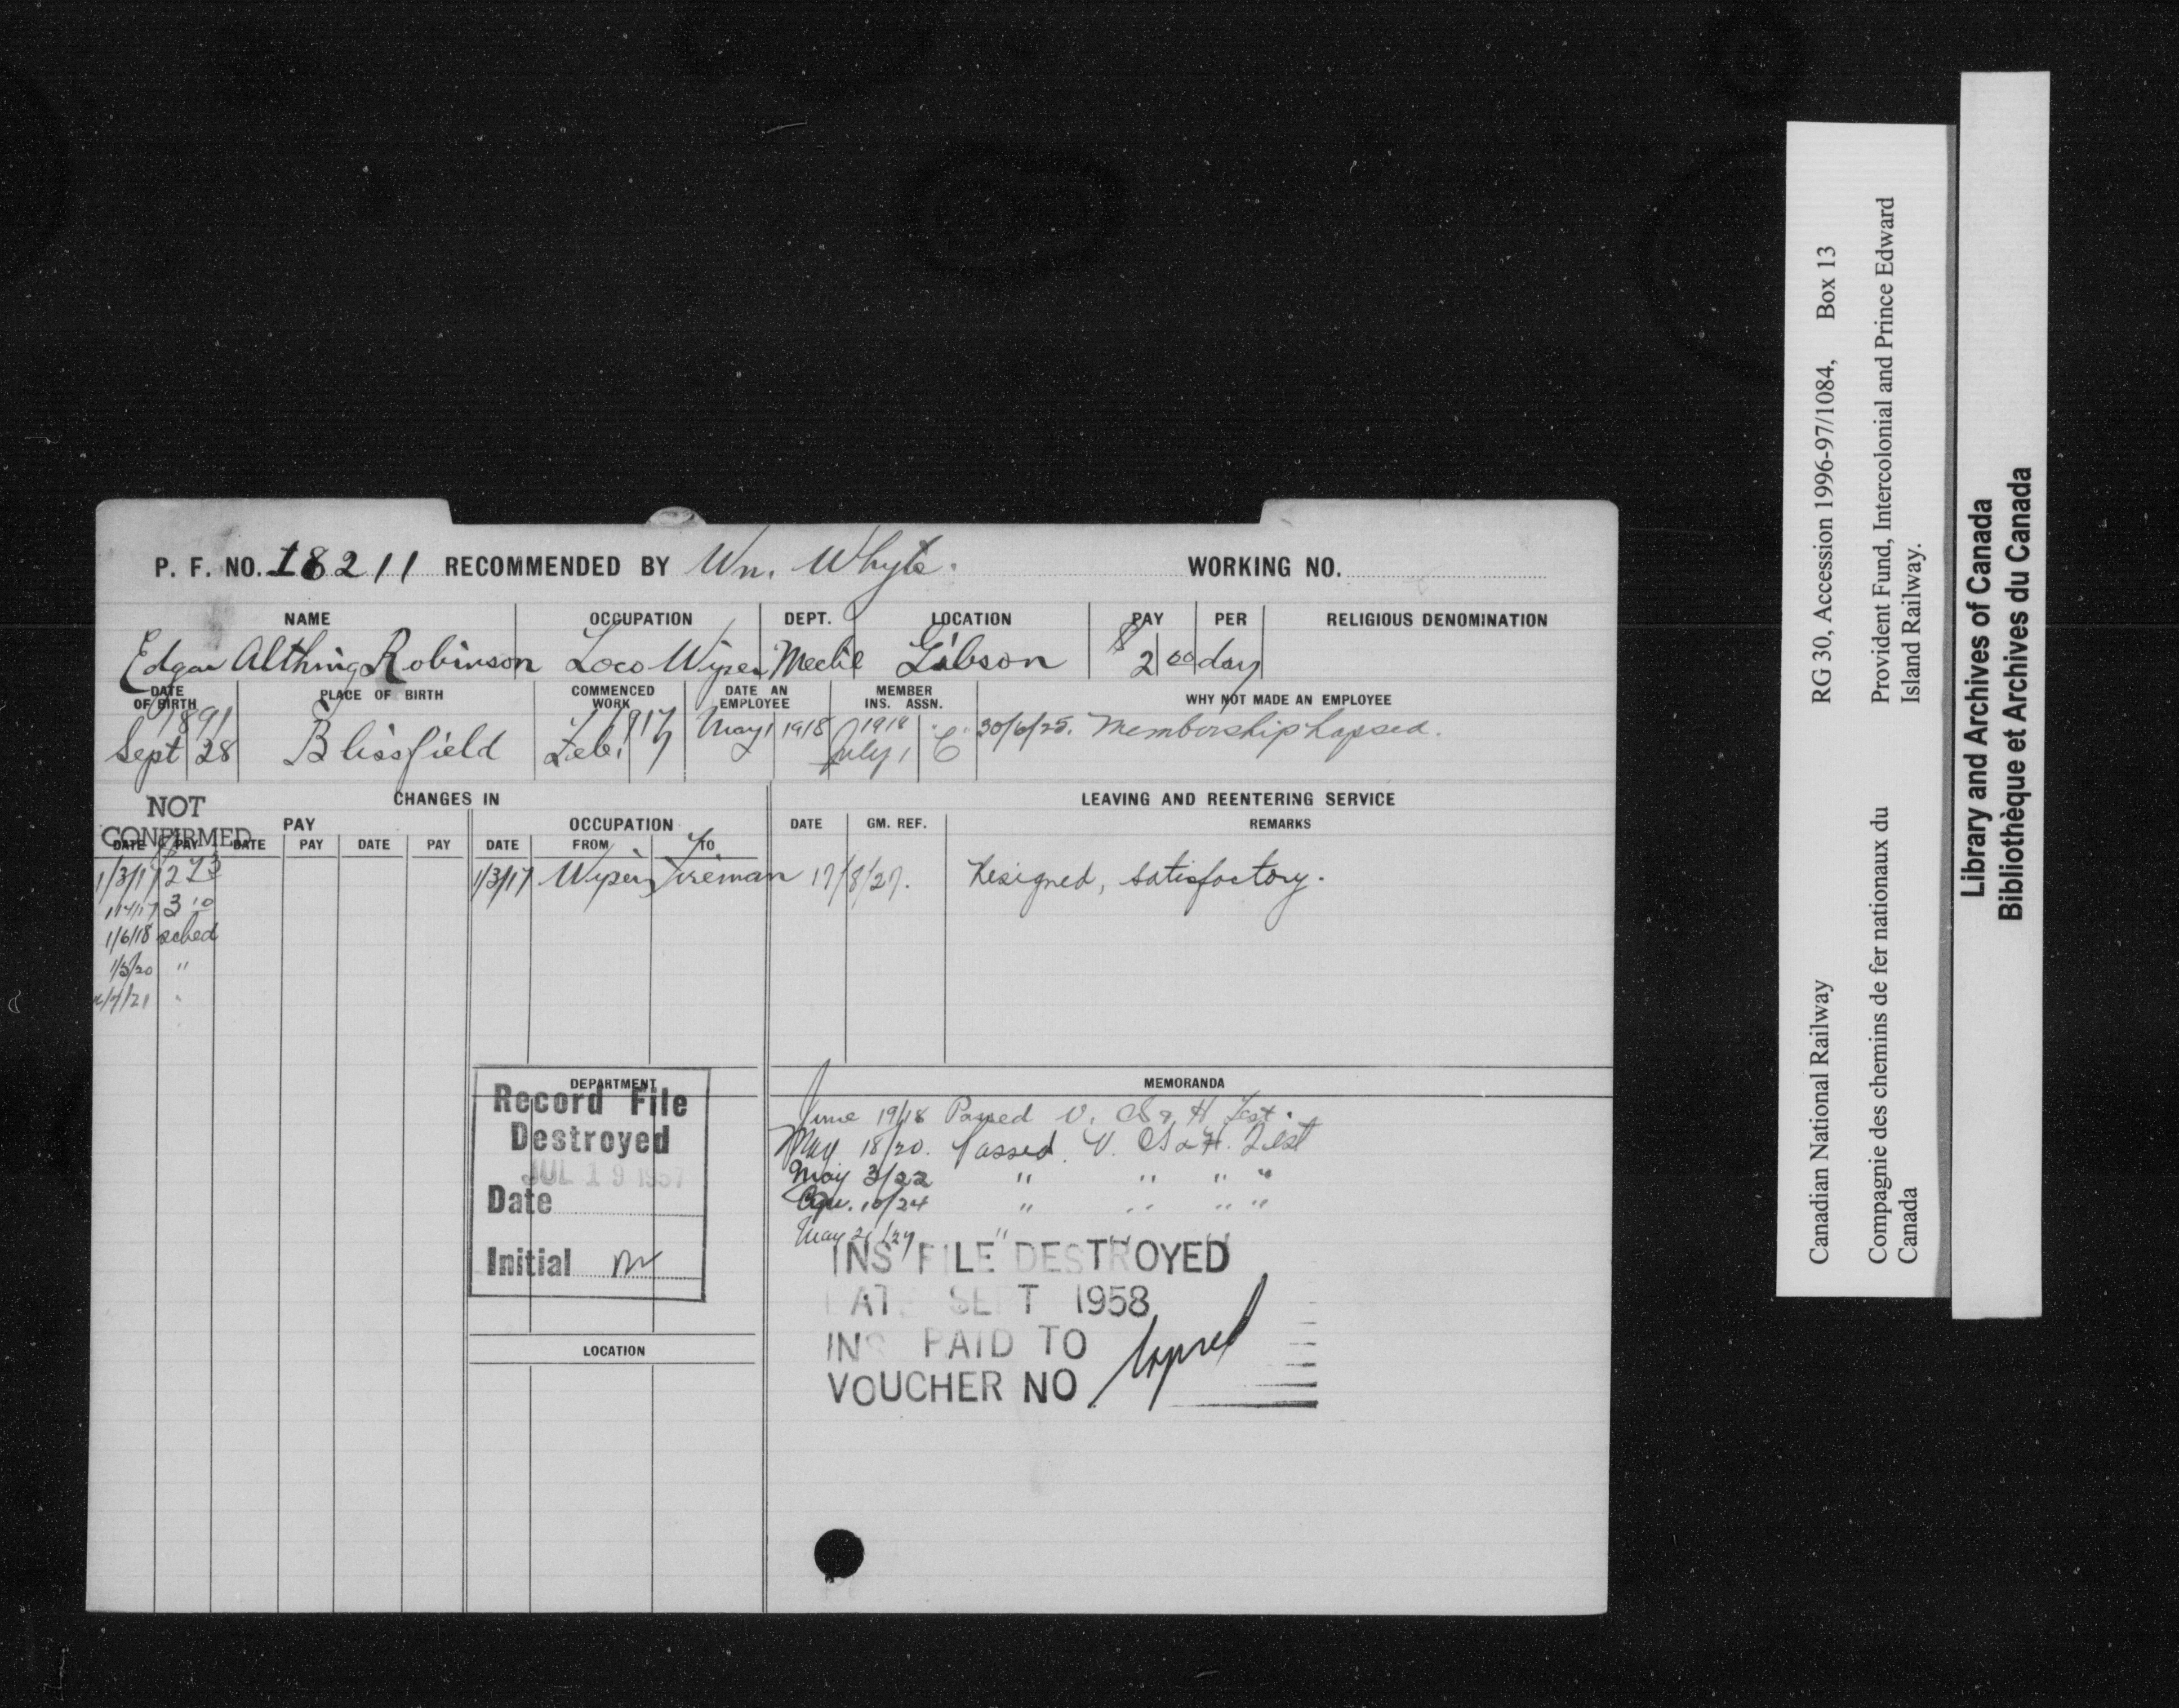 P. F. NO. 18211 RECOMMENDED BY Wm. Whyte. WORKING NO.
NAME OCCUPATION DEPT. LOCATION PAY PER RELIGIOUS DENOMINATION
Edgar Robinson Loco Wiper Gibson $2 00 day
DATE OF BIRTH PLACE OF BIRTH COMMENCED WORK DATE AN EMPLOYEE MEMBER INS. ASSN. WHY NOT MADE AN EMPLOYEE
1891 1917 May 1 1918 1918
Sept 28 Blissfield Feb. 7 July 1 "C" 30/6/25. Membership Lapsed.
NOT CONFIRMED
CHANGES IN LEAVING AND REENTERING SERVICE
PAY OCCUPATION DATE GM. REF. REMARKS
DATE PAY DATE PAY DATE PAY DATE FROM TO
1/3/17 2 73 1/3/17 Wiper Fireman 17/8/27. Resigned, satisfactory.
1/4/17 3 10
1/6/18 sched
1/5/20 "
/21 "
DEPARTMENT MEMORANDA
Record File
Destroyed
JUL 19 1957
Date
Initial
June 19/18 Passed V. CS & H Test.
May 18/20. Passed V. CS & H. Test
May 3/22 " " " "
Apr. 10/24 " " " "
May 21/27 " " "
INS FILE DESTROYED
DATE SEPT 1958
INS PAID TO
VOUCHER NO Lapsed
LOCATION
Canadian National Railway RG 30, Accession 1996-97/1084, Box 13
Compagnie des chemins de fer nationaux du Canada
Provident Fund, Intercolonial and Prince Edward Island Railway.
Library and Archives of Canada
Bibliothèque et Archives du Canada